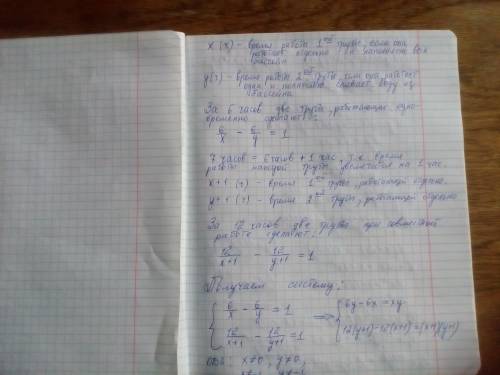 x (ч) - время работы 1ой трубы, если она
работает отдельно и наполняет весь
бассейн
y (ч) - время работы 2ой трубы, если она работает
одна и полностью сливает воду из
бассейна.
За 6 часов две трубы, работающие одно-
временно сделают:
6/x - 6/y = 1
7 часов = 6 часов + 1 час, т.к. время
работы каждой трубы увеличится на 1 час.
x+1 (ч) - время 1ой трубы, работающей отдельно.
y+1 (ч) - время 2ой трубы, работающей отдельно
За 12 часов две трубы при совместной
работе сделают:
12/(x+1) - 12/(y+1) = 1
Получаем систему:
{ 6/x - 6/y = 1 ⟹ { 6y-6x=xy
12/(x+1) - 12/(y+1) = 1 12(y+1)-12(x+1)=(x+1)(y+1)
x≠0, y≠0,
x≠-1, y≠-1